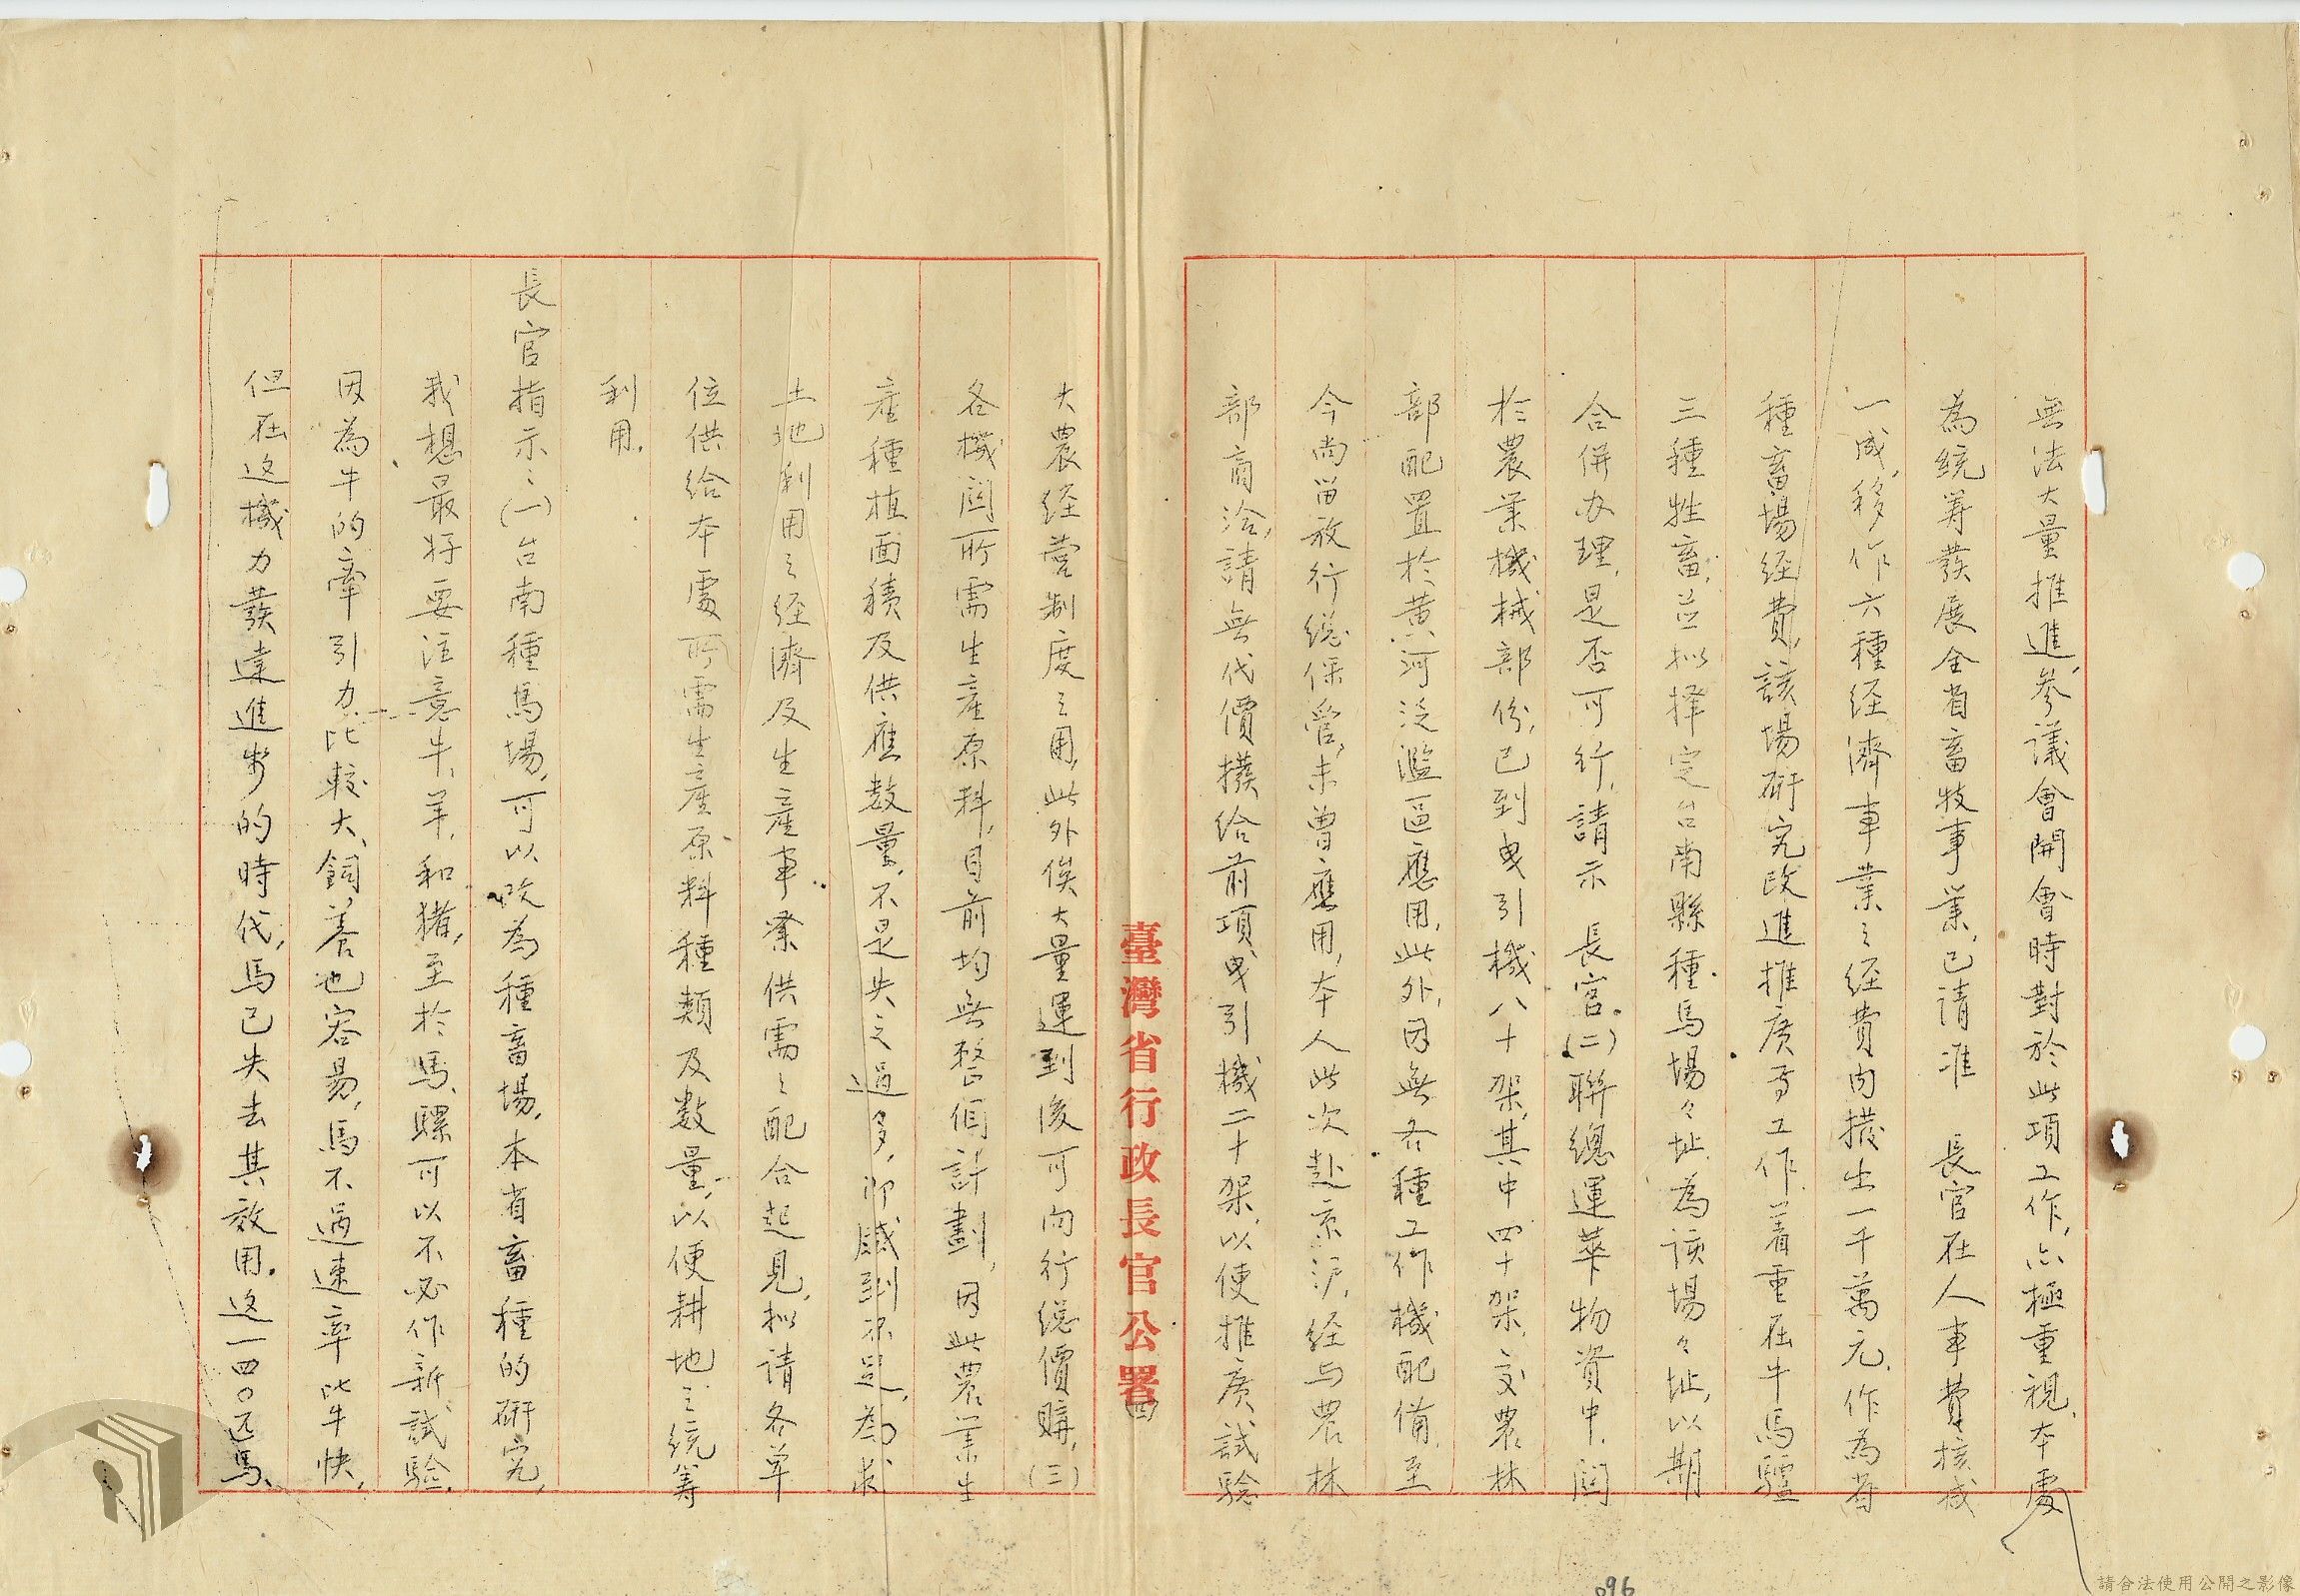 無法大量推進，參議會開會時對於此項工作，亦極重視，本處
為統籌發展全省畜牧事業，已請准　長官在人事費核減
一成，移作六種經濟事業之經費內撥出一千萬元，作為省
種畜場經費，該場研究改進推廣等工作，著重在牛馬驢
三種牲畜，並拟择定台南縣種馬場々址為該場々址，以期
合併办理，是否可行，請示　長官。(二)聯總運華物資中，関
於農業機械部份，已到曳引機八十架，其中四十架，交農林
部配置於黃河泛濫區應用，此外，因無各種工作機配備，至
今尚留放行總保管，未曾應用，本人此次赴京沪，经与農林
部商洽，請無代價撥給前項曳引機二十架，以便推廣試驗
臺灣省行政長官公署
大農经营制度之用，此外俟大量運到後可向行總價購，(三)
各機関所需生産原料，目前均無整個計劃，因此農業生
産種植面積及供應数量，不是失之過多，即感到不足，為求
土地利用之经濟及生産事業供需之配合起見，拟請各单
位供給本處所需生産原料種類及数量，以便耕地之統籌
利用。
長官指示：(一)台南種馬場，可以改為種畜場，本省畜種的研究，
我想最好要注意牛、羊、和猪，至於馬、騾可以不必作新試驗，
因為牛的牽引力比較大，飼養也容易，馬不過速率比牛快，
但在这機力發達進步的時代，馬已失去其效用。这一四〇匹馬、
096
請合法使用公開之影像